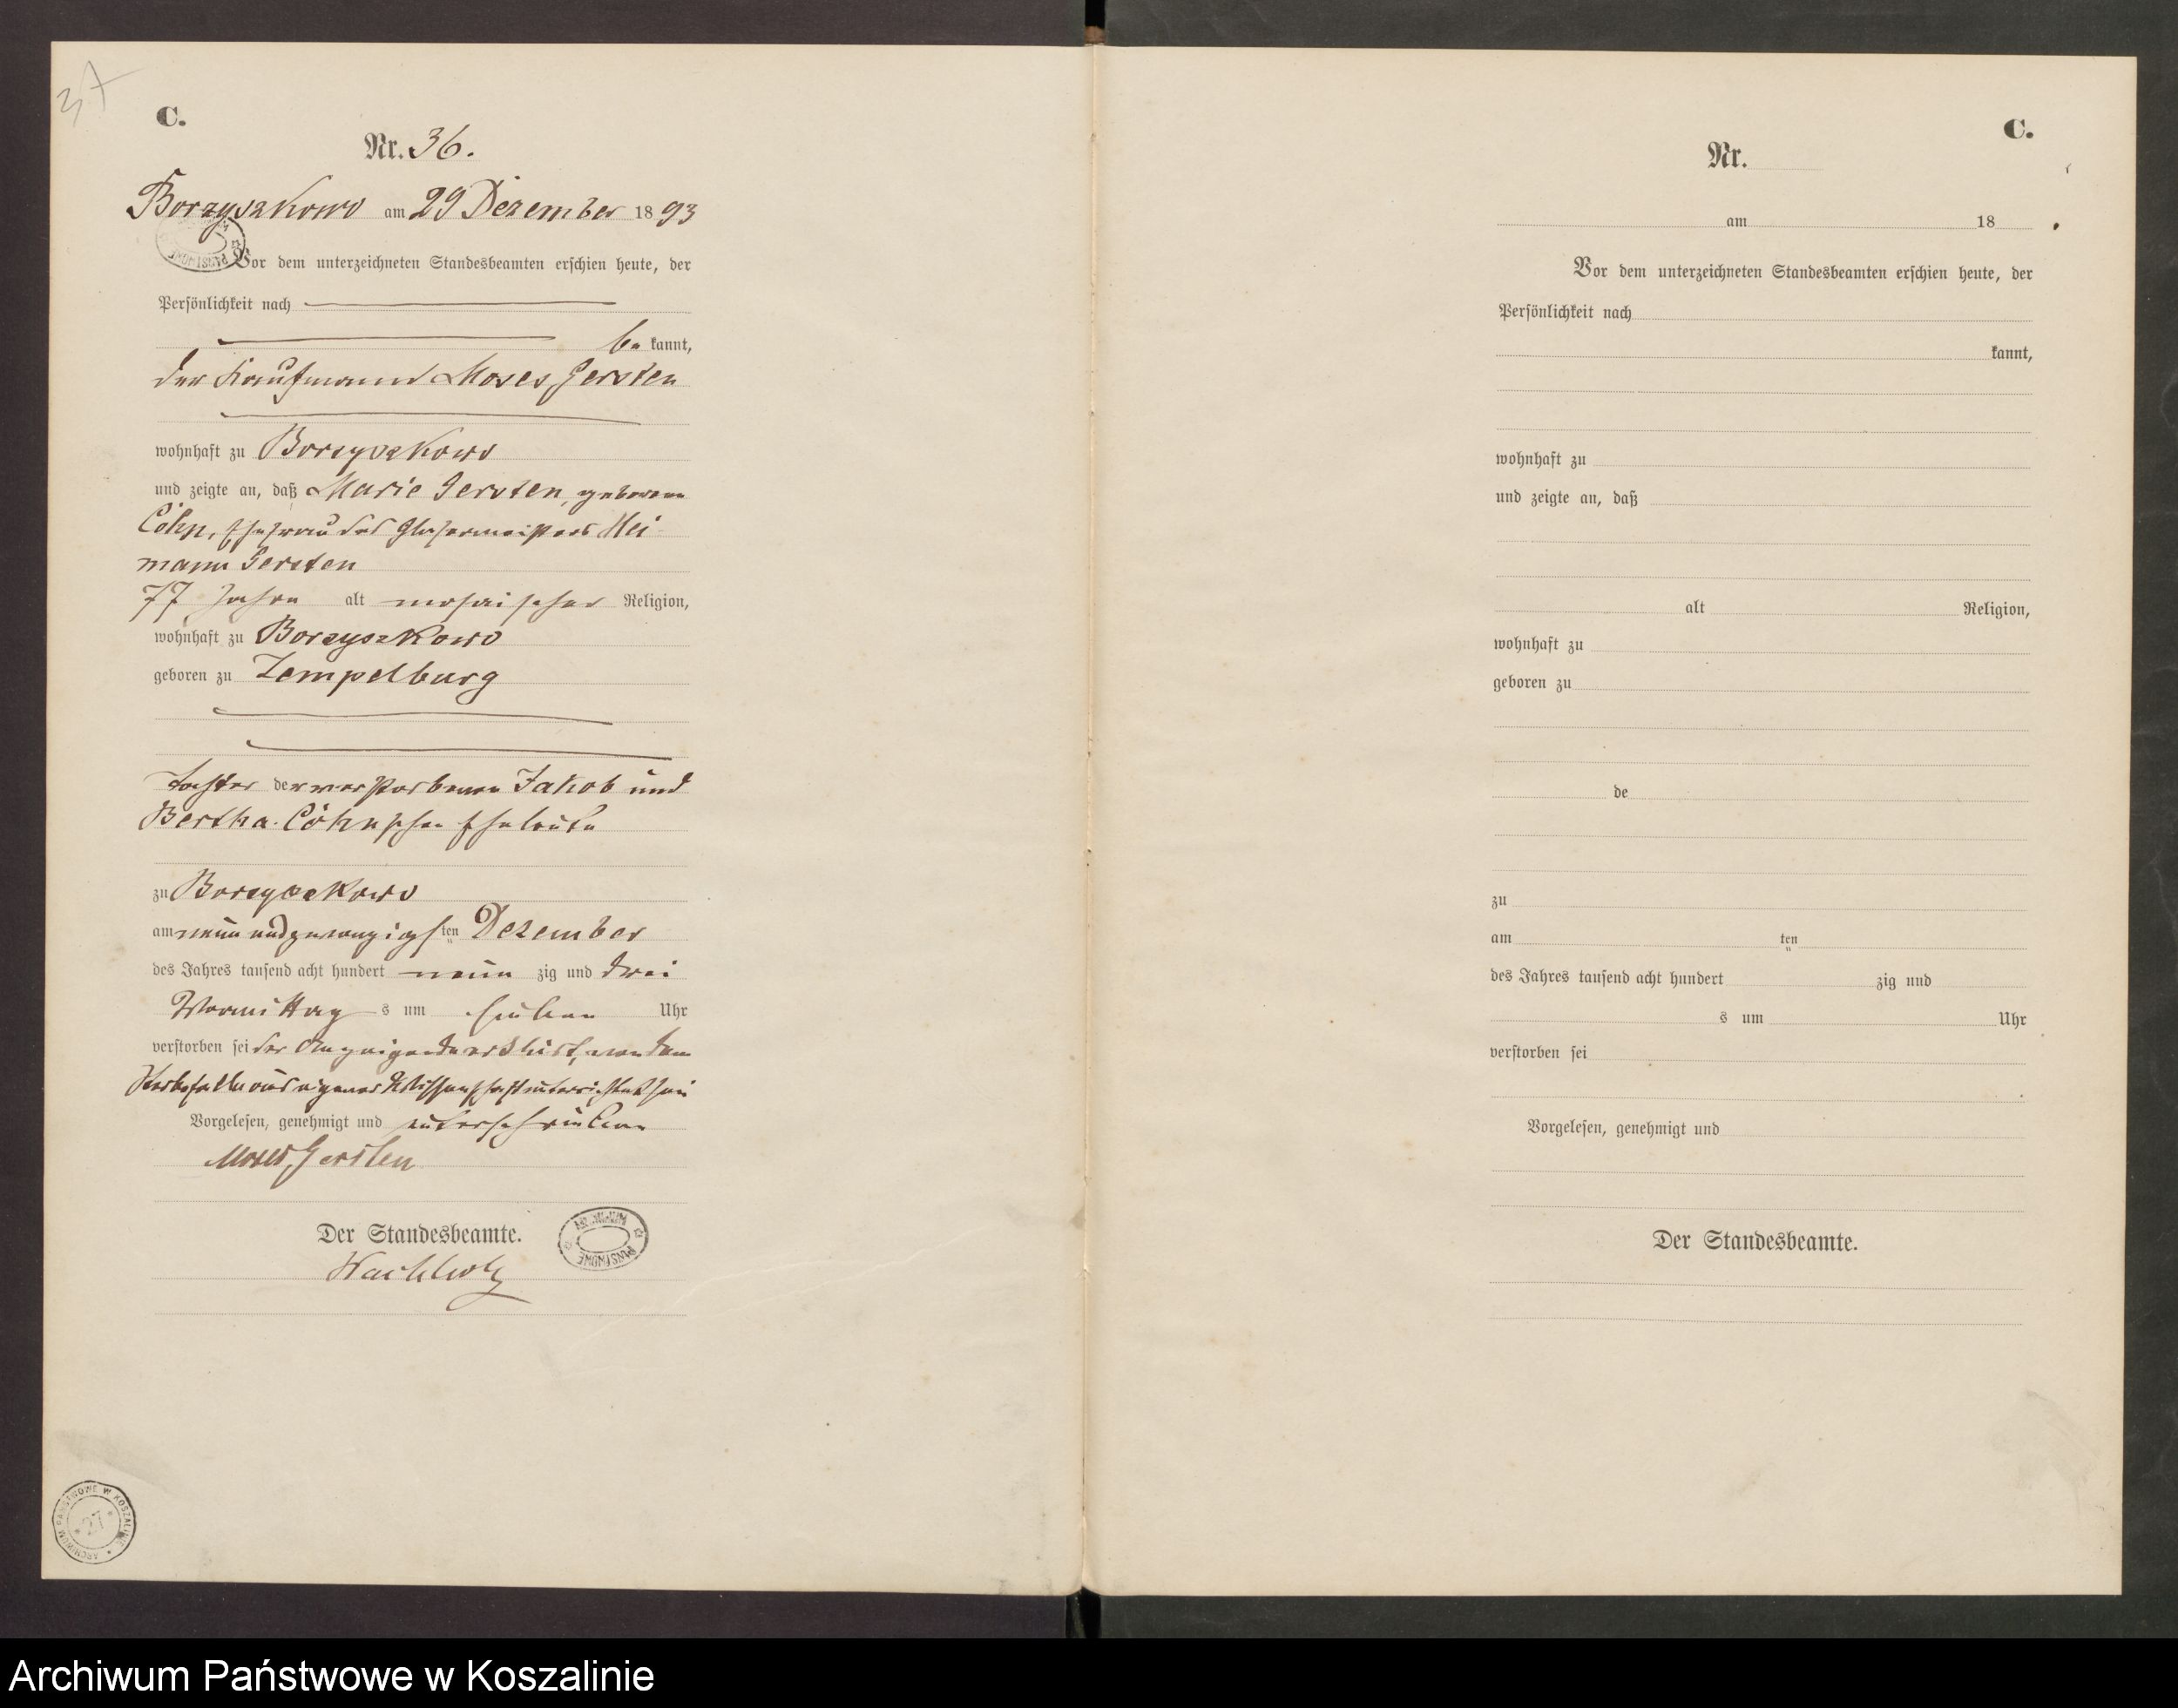 37
C.
Nr. 36.
Borzyszkowo am 29 Dezember 1893
Vor dem unterzeichneten Standesbeamten erschien heute, der
Persönlichkeit nach
be kannt,
der Kaufmann Moses Gersten
wohnhaft zu Borzyszkowo
und zeigte an, daß Marie Gersten, geborene
Cohn, Ehefrau des Glasermeisters Hei
mann Gersten
77 Jahre alt mosaischer Religion,
wohnhaft zu Borzyszkowo
geboren zu Zempelburg
Tochter der verstorbenen Jakob und
Bertha Cohnschen Eheleute
zu Borzyszkowo
am neun und zwanzigsten Dezember
des Jahres tausend acht hundert neun zig und drei
Vormittag s um sieben Uhr
verstorben sei der Anzeigende erklärt, von dem
Sterbefalle aus eigener Wissenschaft unterrichtet sei
Vorgelesen, genehmigt und unterschrieben
Moses Gersten
Der Standesbeamte.
Wachholz
ARCHIWUM PAŃSTWOWE
ARCHIWUM PAŃSTWOWE W KOSZALINIE
27
C.
Nr.
am 18
Vor dem unterzeichneten Standesbeamten erschien heute, der
Persönlichkeit nach
kannt,
wohnhaft zu
und zeigte an, daß
alt Religion,
wohnhaft zu
geboren zu
de
zu
am ten
des Jahres tausend acht hundert zig und
s um Uhr
verstorben sei
Vorgelesen, genehmigt und
Der Standesbeamte.
Archiwum Państwowe w Koszalinie